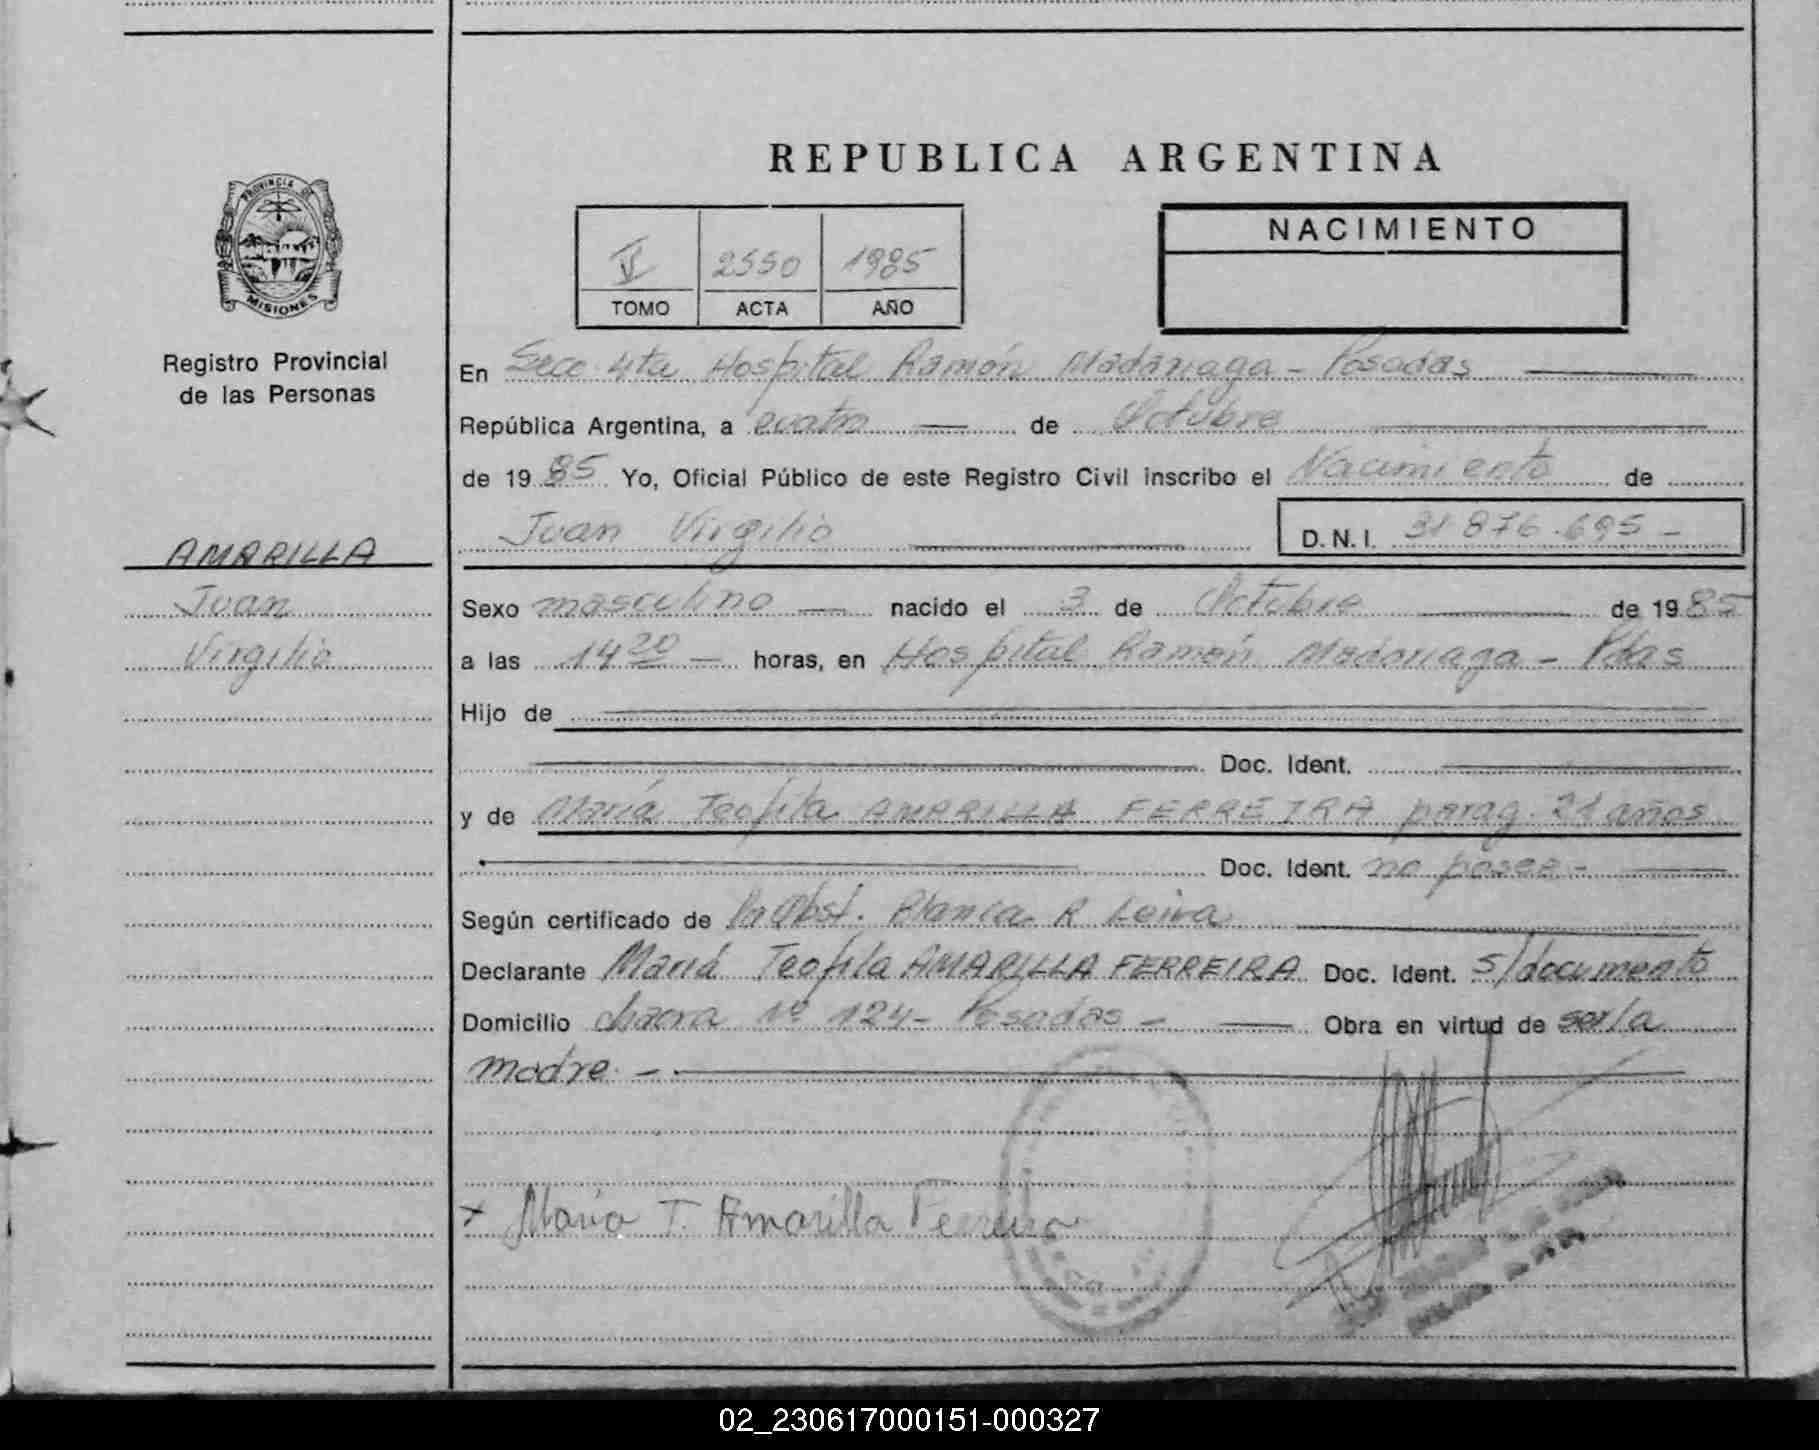 REPUBLICA ARGENTINA
PROVINCIA DE
MISIONES
Registro Provincial
de las Personas
V 2550 1985
TOMO ACTA AÑO
NACIMIENTO
En Secc. 4ta Hospital Ramón Madariaga - Posadas
República Argentina, a cuatro de Octubre
de 1985 Yo, Oficial Público de este Registro Civil inscribo el Nacimiento de
Juan Virgilio D.N.I. 31 876.695 -
AMARILLA
Juan
Virgilio
Sexo masculino nacido el 3 de Octubre de 1985
a las 14 20 horas, en Hospital Ramón Madariaga - Pdas
Hijo de
Doc. Ident.
y de María Teofila AMARILLA FERREIRA parag. 21 años
Doc. Ident. no posee -
Según certificado de Obst. Blanca R Leiva
Declarante María Teofila AMARILLA FERREIRA Doc. Ident. s/documento
Domicilio chacra Nº 124 - Posadas - Obra en virtud de ser la
madre -
x María T. Amarilla Ferreira
02_230617000151-000327